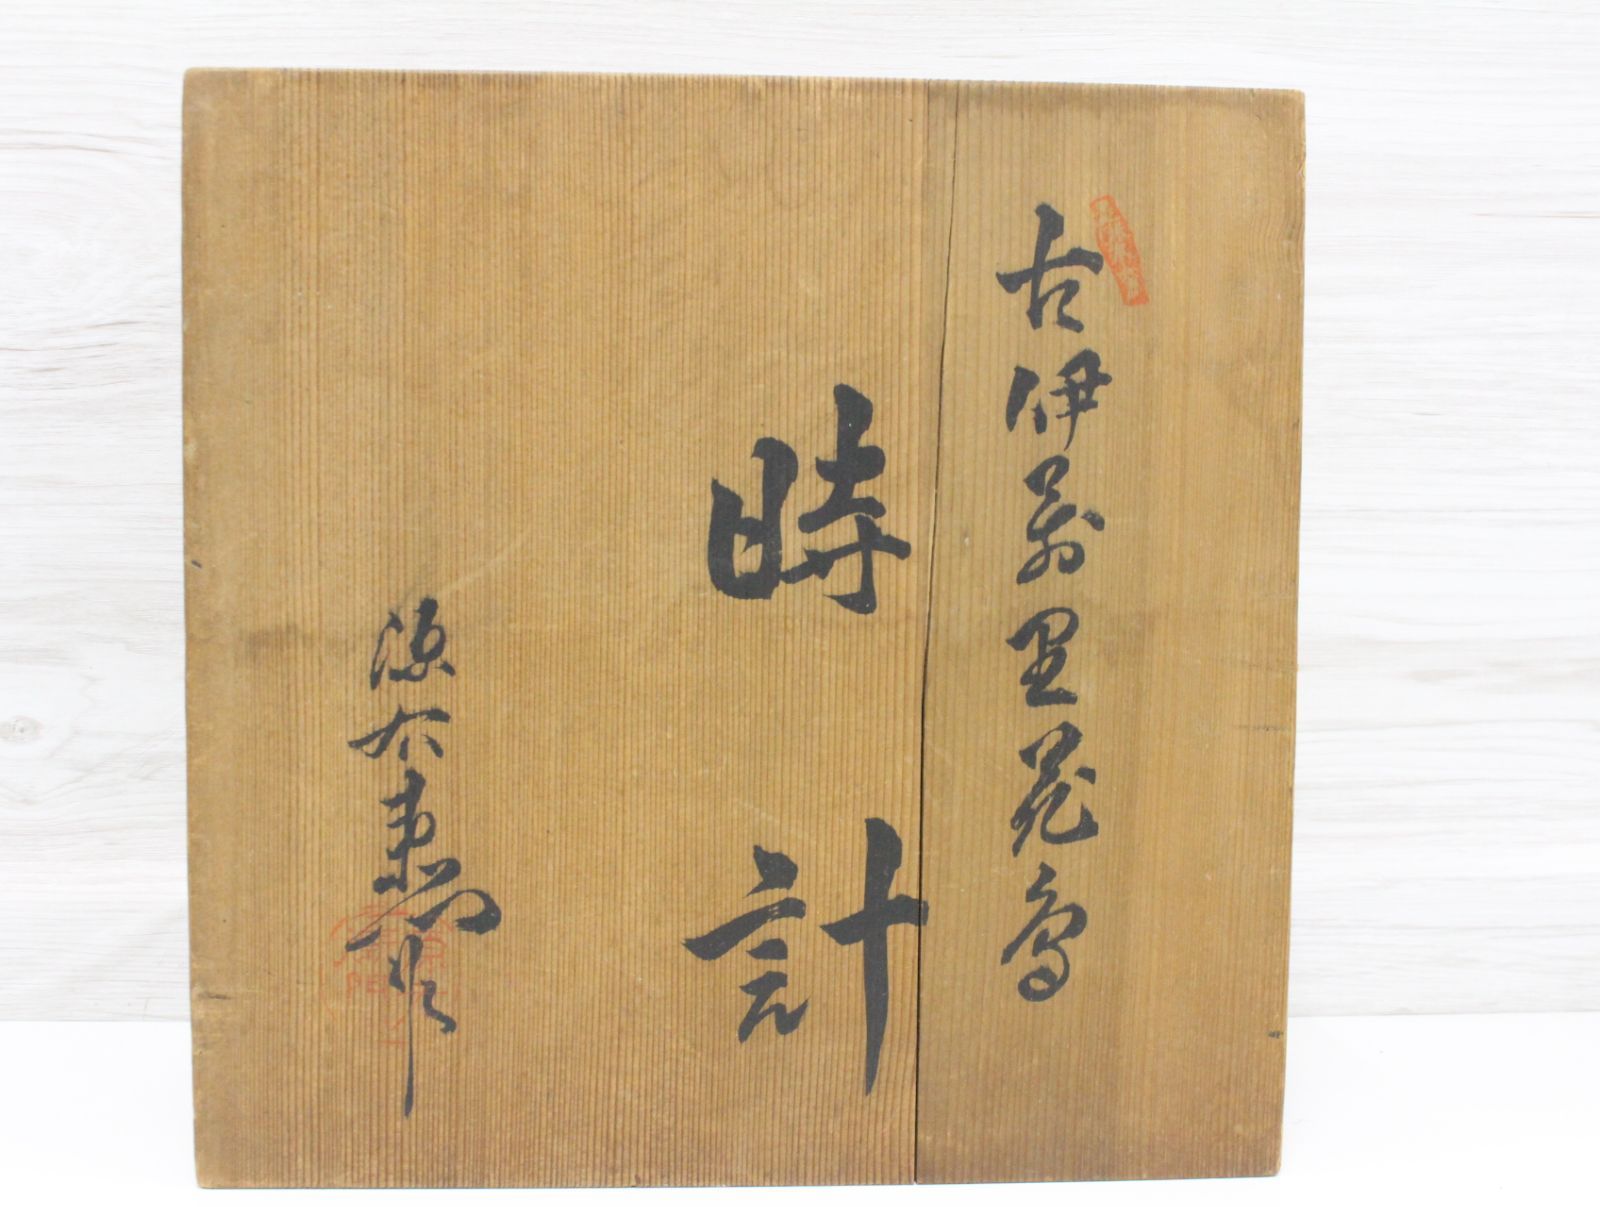 古伊萬里花鳥
時計
源右衛門作